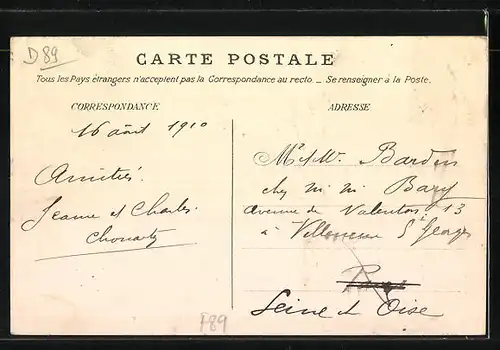 D 89
CARTE POSTALE
Tous les Pays étrangers n'acceptent pas la Correspondance au recto. _ Se renseigner à la Poste.
CORRESPONDANCE
ADRESSE
16 août 1910
Amitiés.
Jeanne et Charles
Mr et M. Bardin
chez M. M. Bary
avenue de Valenton 13
à Villeneuve St Georges
Seine et Oise
F89